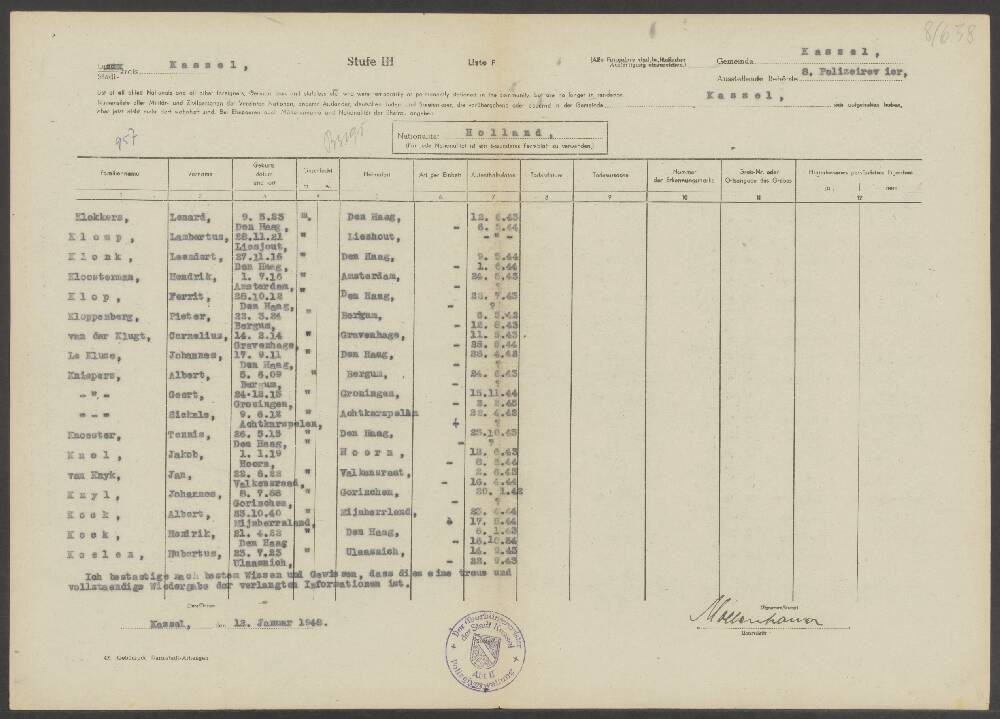 8/638
Kassel,
Stadt- Kreis Kassel,
Stufe III
Liste F
Gemeinde
Ausstellende Behörde 8. Polizeirevier,
List of all allied Nationals and all other foreigners, German Jews and stateless etc. who were temporarily or permanently stationed in the community, but are no longer in residence.
Kassel,
sich aufgehalten haben,
aber jetzt nicht mehr dort wohnhaft sind. Bei Ehefrauen auch Mädchenname und Nationalität des Ehemannes angeben.
957
Nationalität: Holland,
(Für jede Nationalität ist ein besonderes Formblatt zu verwenden.)
Familienname Vorname Geburts datum und -ort Geschlecht m. w. Heimatort Art der Einheit Aufenthaltsdaten Todesdatum Todesursache Nummer der Erkennungsmarke Grab-Nr. oder Ortsangabe des Grabes Hinterlassenes persönliches Eigentum
ja nein
1 2 3 4 5 6 7 8 9 10 11 12
Klokkers, Lenard, 9. 5.23 m. Den Haag, 12. 6.43
Den Haag, - 6. 5.44
Klomp, Lambertus, 28.11.21 " Lieshout, - " -
Liesjout,
Klonk, Leendert, 27.11.16 " Den Haag, 9. 5.44
Den Haag, - 1. 6.44
Kloosterman, Hendrik, 1. 7.16 " Amsterdam, 24. 5.43
Amsterdam, - ?
Klop, Ferrit, 28.10.12 " Den Haag, 22. 7.43
Den Haag, - ?
Kloppenberg, Pieter, 22. 3.24 " Bergum, 6. 5.42
Bergum, - 12. 8.43
van der Klugt, Cornelius, 14. 2.14 " Gravenhage, 11. 5.43
Gravenhage, - 25. 8.44
La Kluse, Johannes, 17. 9.11 " Den Haag, 28. 4.42
Den Haag, - ?
Knispers, Albert, 5. 6.09 " Bergum, 24. 6.43
Bergum, - ?
- " - Geert, 24.12.15 " Groningen, 15.11.44
Groningen, - 2. 2.45
- " - Sickele, 9. 6.12 " Achtkarspelen 22. 4.42
Achtkarspelen, - ?
Knoester, Tennis, 26. 5.15 " Den Haag, 25.10.43
Den Haag, - ?
Knol, Jakob, 1. 1.19 " Hoorn, 12. 6.43
Hoorn, - 8. 5.44
van Knyk, Jan, 22. 6.22 " Valkensraat, 2. 6.43
Valkensraad, - 16. 4.44
Knyl, Johannes, 8. 7.88 " Gorinchen, 20. 1.42
Gorinchen, - ?
Kock, Albert, 23.10.40 " Mijnherrland, 23. 4.44
Mijnherraland, - 17. 8.44
Kock, Hendrik, 21. 4.22 " Den Haag, 6. 1.43
Den Haag - 16.10.54
Koelen, Hubertus, 23. 7.23 " Ulaasaich, 14. 9.43
Ulaasaich, - 22. 9.43
Ich bestaetige nach bestem Wissen und Gewissen, dass dies eine treue und
vollstaendige Wiedergabe der verlangten Informationen ist.
Kassel, den 12. Januar 1948.
Mollenhauer
Unterschrift
Der Oberbürgermeister der Stadt Kassel
Abt II
Polizeiverwaltung